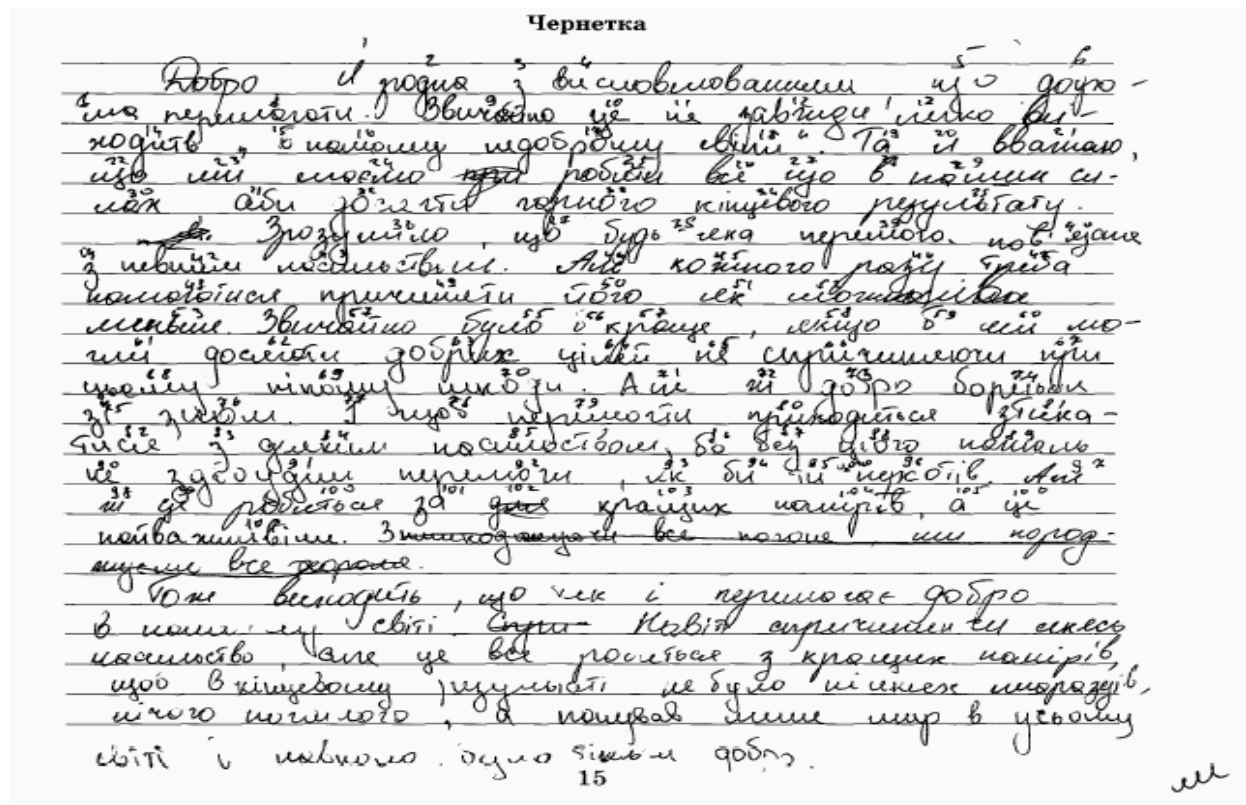 Чернетка
Добро Я згодна з висловлюванням що
ма перемагати. Звичайно це не завжди легко ви-
ходить "в нашому недоброму світі". Та я вважаю,
що ми маємо робити все що в наших си-
лах аби досягти гарного кінцевого результату.
Зрозуміло, що будь яка перемога пов'язане
з певним насильством. Але кожного разу треба
намагатися причиняти його як
менше. Звичайно було б краще, якщо б ми мо-
гли досягати добрих цілей не спричиняючи при
цьому нікому шкоди. Але ж добро бореться
зі злом. І щоб перемогти приходиться зтика-
тися з деяким насильством, бо без цього на жаль
не здобудеш перемоги, як би не хотів. Але
ж це робиться за для кращих намірів, а це
найважливіше. все погане, ми народ-
жуємо все хороше.
Тож виходить, що так і перемагає добро
в нашому світі. Навіть спричиняючи якесь
насильство, але це все робиться з кращих намірів,
щоб в кінцевому результаті не було ніяких мираздів,
нічого поганого, а панував лише мир в усьому
світі і навколо було тільки добро.
15